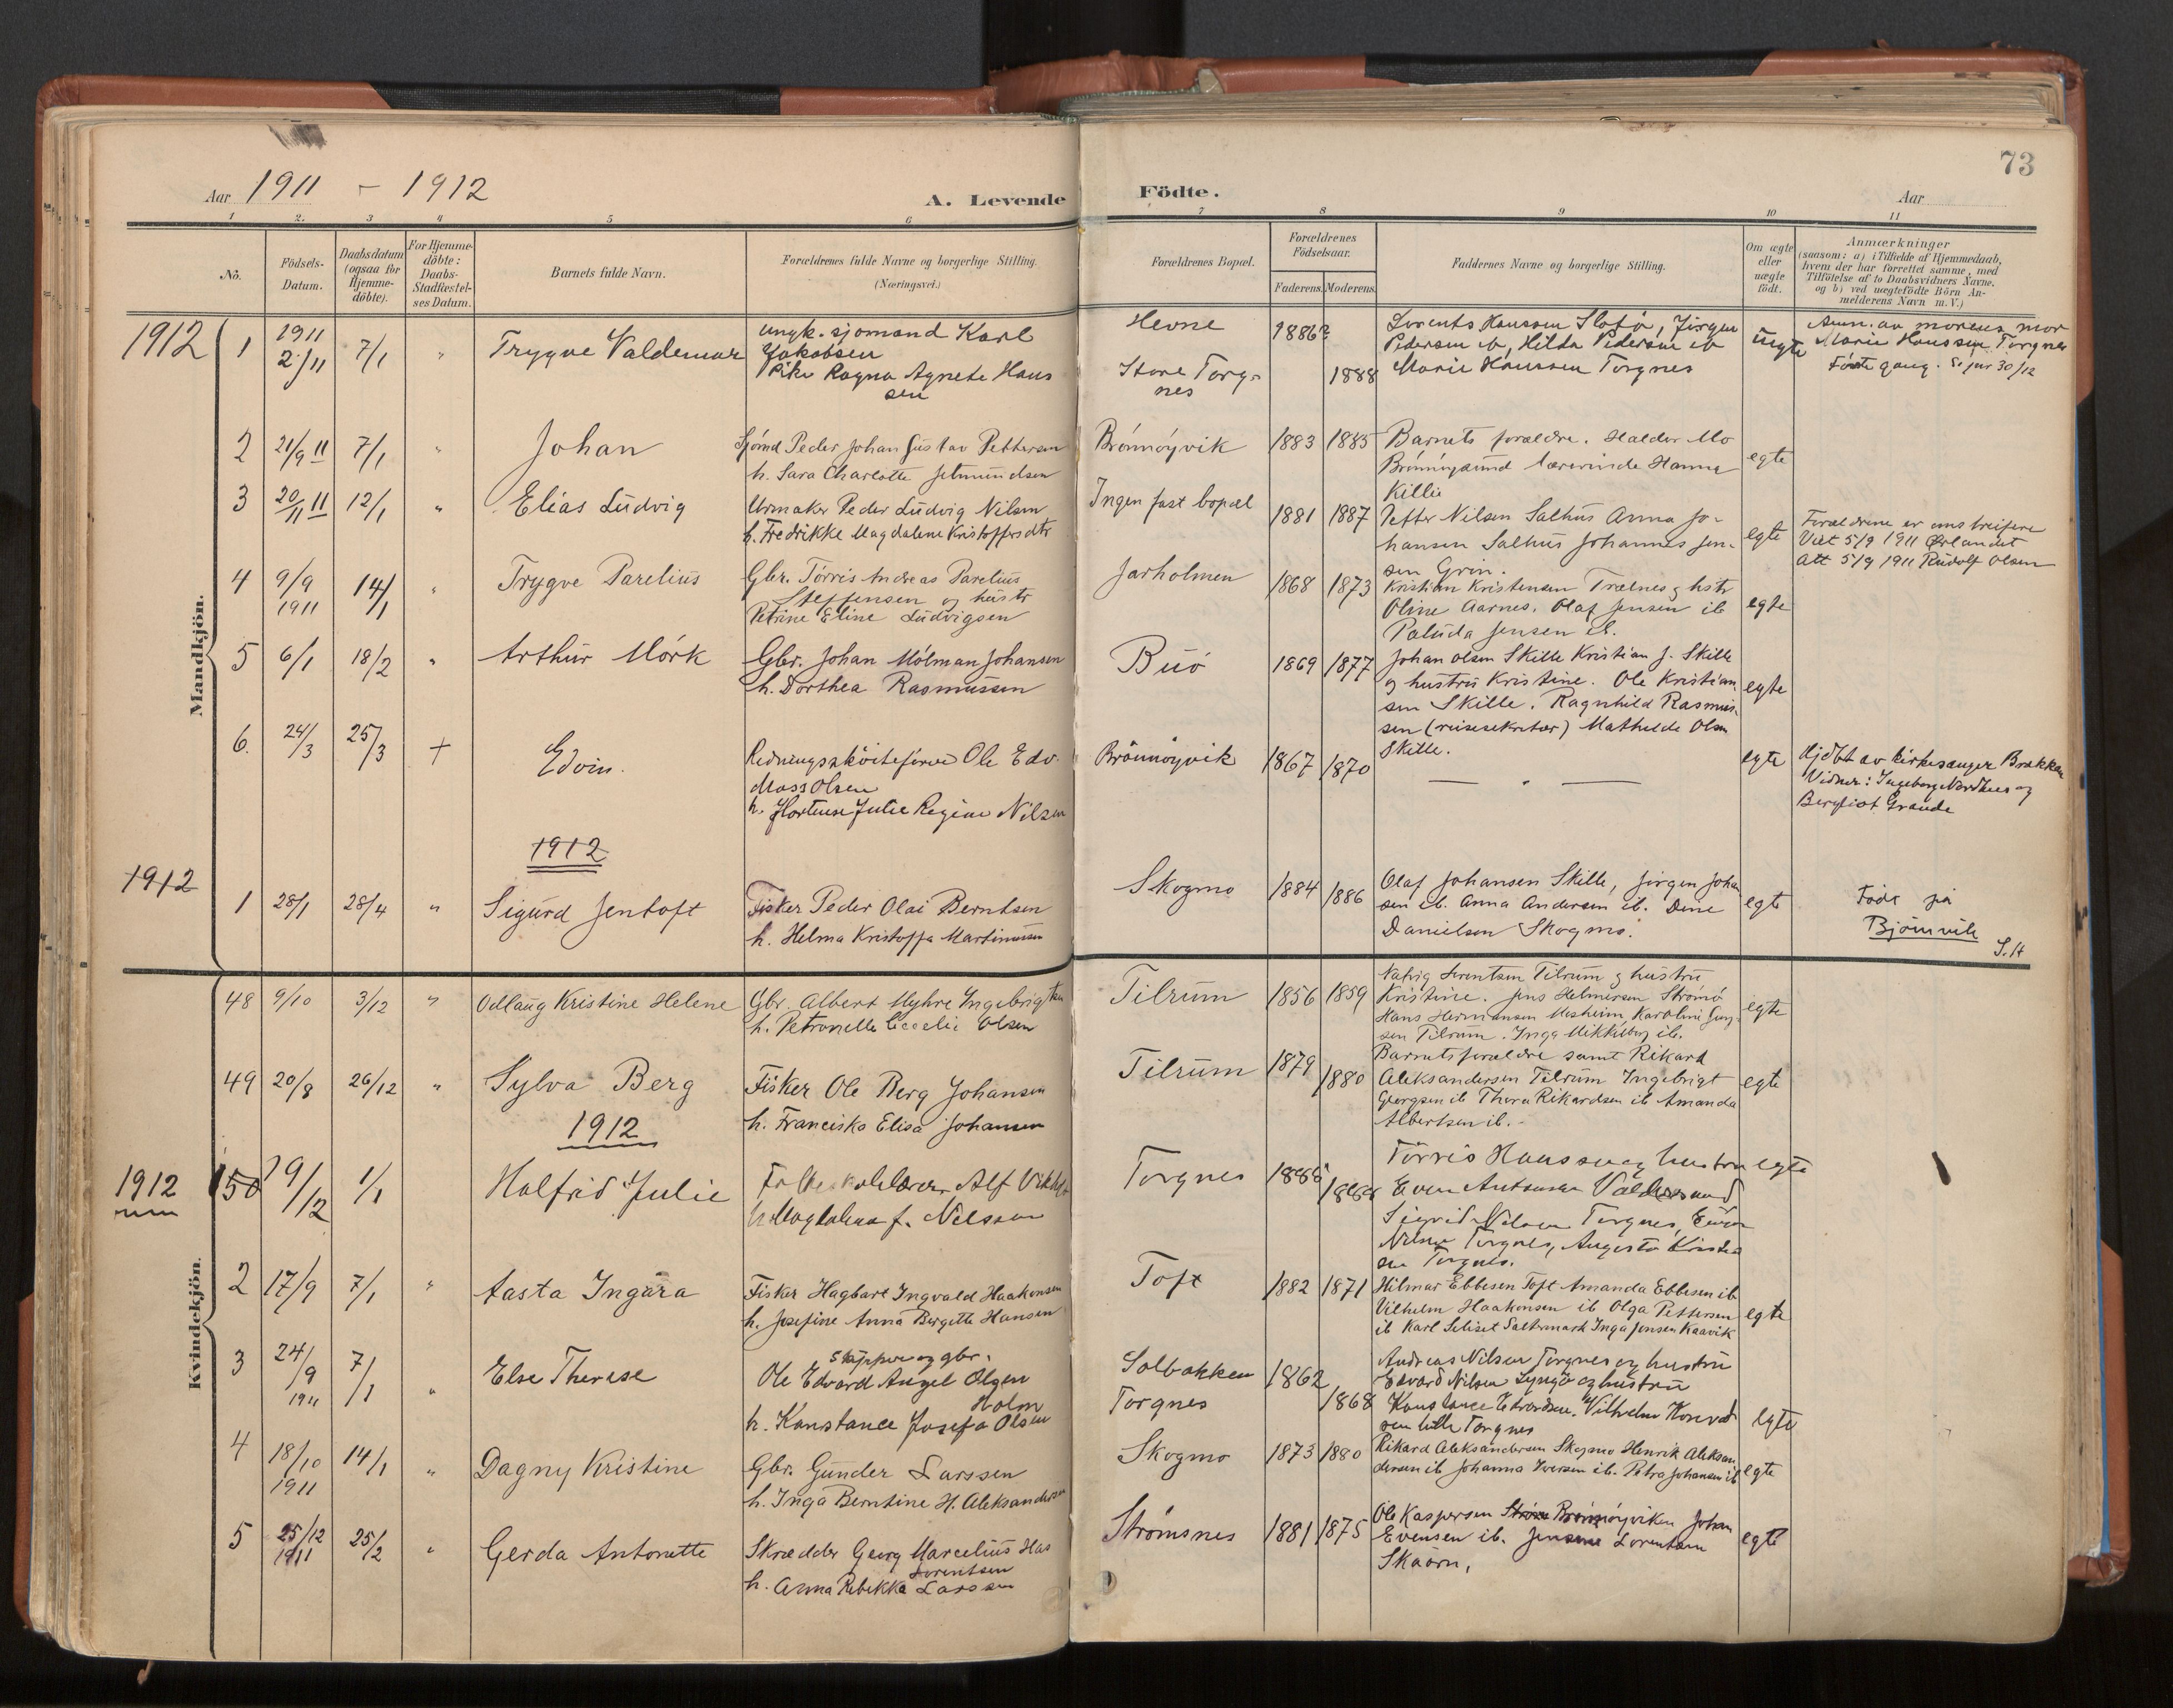 73
Aar 1911 - 1912 A. Levende Födte. Aar
1 2. 3 4 5 6 7 8 9 10 11
No.
Födsels-Datum.
Daabsdatum (ogsaa for Hjemme-döbte).
For Hjemme-döbte: Daabs-Stadfæstel-ses Datum.
Barnets fulde Navn.
Forældrenes fulde Navne og borgerlige Stilling.
(Næringsvei.)
Forældrenes Bopæl.
Forældrenes Födselsaar.
Faderens. Moderens.
Faddernes Navne og borgerlige Stilling.
Om ægte eller uægte födt.
Anmærkninger
(saasom: a) i Tilfælde af Hjemmedaab,
hvem der har forrettet samme, med
Tilföielse af to Daabsvidners Navne.
og b) ved uægtefödte Börn An-
melderens Navn m.V.)
Mandkjön.
1912 1 1911 2/11 7/1 " Trygve Valdemar
ungk. sjömand Karl
Jakobsen
Pike Ragna Agnete Hans
sen
Hevne
Store Torg-
nes
1886? 1888
Lorents Hanssen Slotö, Jörgen
Pedersen ib, Hilda Pedersen ib
Marie Hanssen Torgnes
uegte
Anm. av morens mor
Marie Hanssen Torgnes
Förste gang.
2 21/9 11 7/1 " Johan
Sjömd Peder Johan Gustav Pettersen
h. Sara Charlotte
Brönnöyvik 1883 1885
Barnets forældre. Haldor Mo
Brönnöysund lærerinde Hanna
Killie
egte
3 20/11 11 12/1 " Elias Ludvig
Urmaker Peder Ludvig Nilsen
h. Fredrikke Magdalene Kristoffersdtr
Ingen fast bopæl 1881 1887
Petter Nilsen Salhus Anna Jo-
hansen Salhus Johannes Jen-
sen Grön.
egte
Forældrene er omstreifere
Viet 5/9 1911 Örlandet
Att 5/9 1911 Rudolf Olsen
4 9/9 1911 14/1 " Trygve Parelius
Gbr. Törris Andreas Parelius
Steffensen og hustr
Petrine Eline Ludvigsen
Jarholmen 1868 1873
Kristian Kristensen Trælnes og hstr
Oline Aarnes. Olaf Jensen ib
Paluda Jensen ib.
egte
5 6/1 18/2 " Arthur Mörk
Gbr. Johan Mölman Johansen
h. Dorthea Rasmussen
Buö 1869 1877
Johan Olsen Skille Kristian J. Skille
og hustru Kristine. Ole Kristian
sen Skille. Ragnhild Rasmus-
sen (reisesekretær) Mathilde Olsen
Skille.
egte
6. 24/3 25/3 + Edvin.
Redningssköiteförer Ole Edv.
Moss Olsen
h. Hortense Julie Regine Nilsen
Brönnöyvik 1867 1870
— " —
egte
Hjdbt av kirkesanger Brakken
Vidner: Ingeborg Nordhus og
Bergliot Grande
1912
1912 1 28/1 28/4 " Sigurd Jentoft
Fisker Peder Olai Berntsen
h. Helma Kristoffa Martinussen
Skogmo 1884 1886
Olaf Johansen Skille, Jörgen Johan
sen ib. Anna Andersen ib. Dine
Danielsen Skogmo.
egte
Födt på
Bjørnvik
S.H
Kvindekjön.
48 9/10 3/12 " Odlaug Kristine Helene
Gbr. Albert Myhre Ingebrigtsen
h. Petronelle Cecelie Olsen
Tilrum 1856 1859
Lorentsen Tilrum og hustru
Kristine. Jens Helmersen Strömö
Hans Hermansen Karoline
sen Tilrum. Inga Mikkelborg ib.
egte
49 20/8 26/12 " Sylva Berg
Fisker Ole Berg Johansen
h. Franciska Elisa Johansen
Tilrum 1879 1880
Barnets forældre samt Rikard
Aleksandersen Tilrum Ingebrigt
Georgsen ib Thora Rikardsen ib Amanda
Albertsen ib.
egte
1912
1912 1 50 9/12 1/1 Halfrid Julie
Folkeskolelærer Alf
h. Magdalena f. Nilsson
Torgnes
Törris Hanssen og hustru
Even Antonsen Valdersund
Sigrid Nilsen Torgnes, Einar
Nilsen Torgnes, Augusta Kristia
sen Torgnes.
egte
2 17/9 7/1 " Aasta Ingara
Fisker Hagbart Ingvald Haakonsen
h. Josefine Anna Bergitte Hansen
Toft 1882 1871
Hilmar Ebbesen Toft Amanda Ebbesen ib
Vilhelm Haakonsen ib Olga Pettersen
ib Karl Inga Jensen Kaavik
egte
3 24/9 1911 7/1 " Else Therese
Skipper og gbr.
Ole Edvard Angel Olsen
Holm
h. Konstance Josefa Olsen
Solbakken
Torgnes
1862 1868
Andreas Nilsen Torgnes og hustru
Edvard Nilsen Lyngö og hustru
Konstance Edvardsen. Vilhelm Konrad
sen lille Torgnes
egte
4 18/10 1911 14/1 " Dagny Kristine
Gbr. Gunder Larssen
h. Inga Berntine H. Aleksandersen
Skogmo 1873 1880
Rikard Aleksandersen Skogmo Henrik Aleksan
dersen ib Johanna Iversen ib. Petra Johansen ib
egte
5 25/12 1911 25/2 " Gerda Antonette
Skrædder Georg Marcelius Has
Lorentsen
h. Anna Rebekka Larssen
Strömsnes 1881 1875
Ole Kaspersen Ström Brönnöyviken Johan
Evensen ib. Jensine Lorentsen
Skaarn,
egte